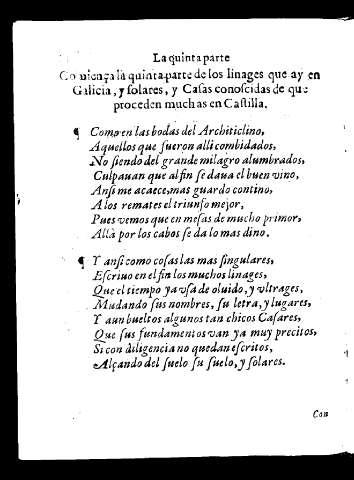 La quinta parte
Comiença la quinta parte de los linages que ay en
Galicia, y solares, y Casas conoscidas de que
proceden muchas en Castilla.
¶ Como en las bodas del Architiclino,
Aquellos que fueron alli combidados,
No siendo del grande milagro alumbrados,
Culpauan que al fin se daua el buen vino,
Ansi me acaece, mas guardo contino,
A los remates el triunfo mejor,
Pues vemos que en mesas de mucho primor,
Alla por los cabos se da lo mas dino.
¶ Y ansi como cosas las mas singulares,
Escriuo en el fin los muchos linages,
Que el tiempo ya vsa de oluido, y vltrages,
Mudando sus nombres, su letra, y lugares,
Y aun bueltos algunos tan chicos Casares,
Que sus fundamentos van ya muy precitos,
Si con diligencia no quedan escritos,
Alçando del suelo su suelo, y solares.
Con